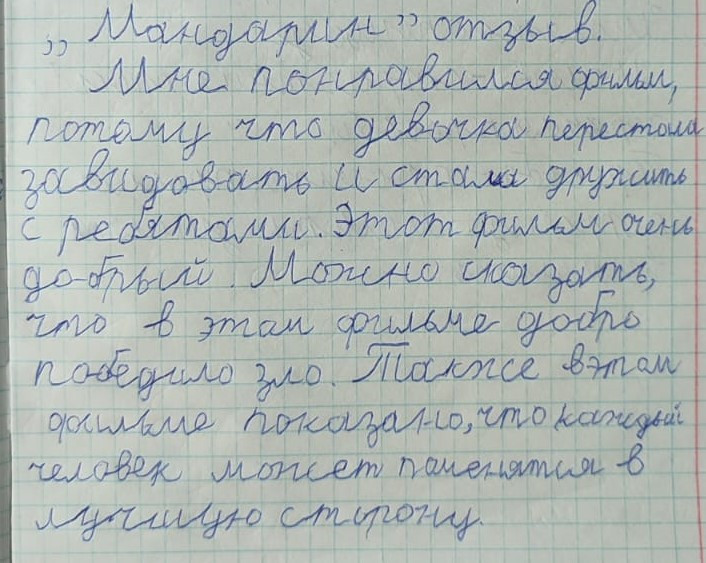 „Мандарин” отзыв.
Мне понравился фильм,
потому что девочка перестала
завидовать и стала дружить
с ребятами. Этот фильм очень
добрый. Можно сказать,
что в этом фильме добро
победило зло. Также в этом
фильме показано, что каждый
человек может поменятся в
лучшую сторону.